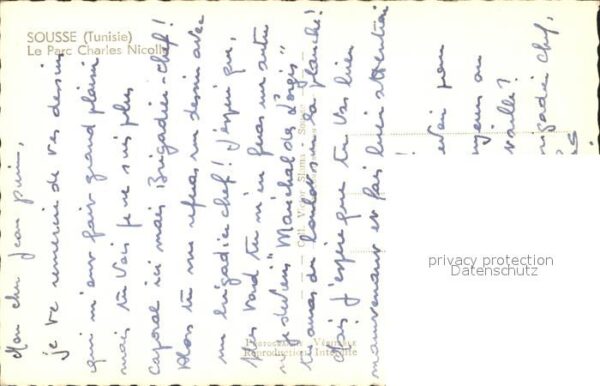 SOUSSE (Tunisie)
Le Parc Charles Nicolle
Mon cher Jean
je te remercie de tes dessins
qui m'ont fait grand plaisir
mais tu vois je ne suis plus
caporal ici mais Brigadier-chef!
Alors tu me referas un dessin avec
un brigadier chef! J'espère que,
plus tard tu m'en feras un autre
"Maréchal des Logis"
tu auras du
Mais j'espère que tu vas bien
maintenant et fais bien attention
!
brigadier chef,
Edit. Victor - Sousse
Reproduction Interdite
privacy protection
Datenschutz